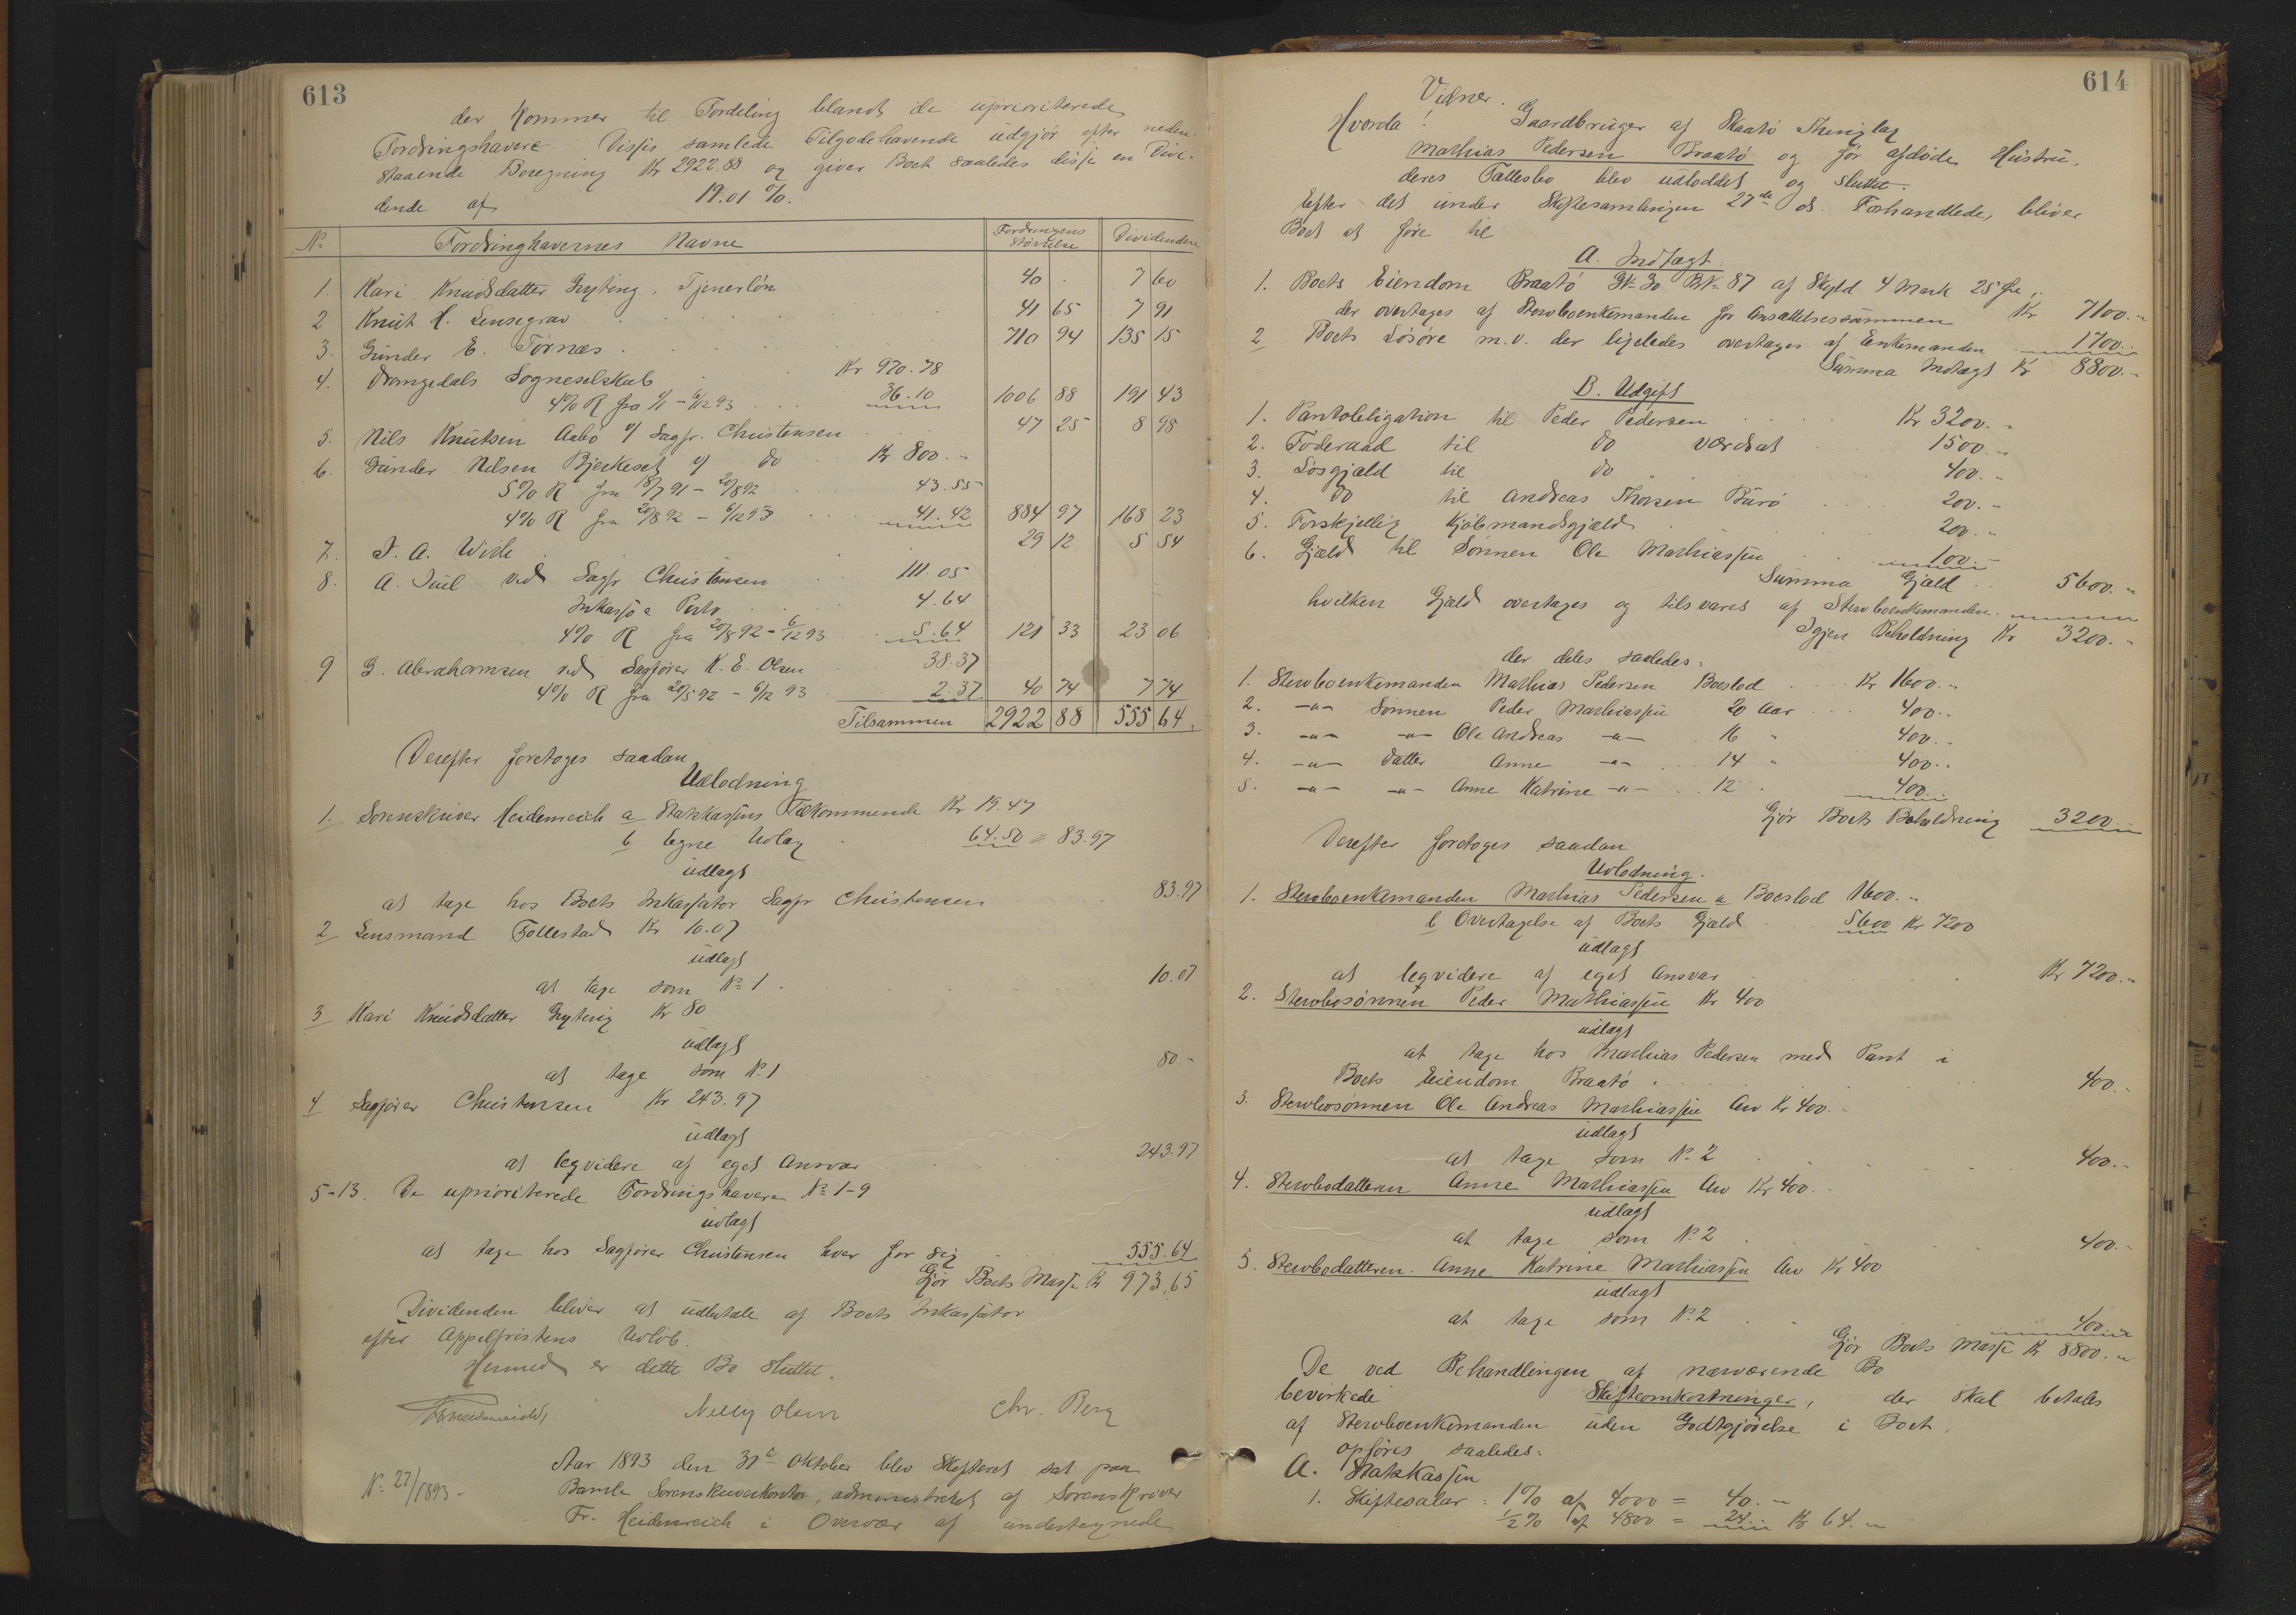 613
der kommer til Fordeling blandt de uprioriterede
Fordringshavere. Disses samlede Tilgodehavende udgjør efter neden-
staaende Beregning Kr 2922.88 og giver Boet saaledes disse en Divi-
dende af 19.01 %.
No Fordringhavernes Navne Fordringens Størrelse Dividenden
1. Kari Knudsdatter Gryting, Tjenerløn 40 . 7 60
2 Knut H. Lensegrav 41 65 7 91
3. Gunder E. Tørnæs 710 94 135 15
4. Drangedals Sogneselskab Kr 970.78
4% R fra 1/1 - 6/12 93 36.10 1006 88 191 43
5. Nils Knutsen Aabø v/ Sagfr. Christensen 47 25 8 98
6. Gunder Nilsen Bjerkeset v/ do Kr 800.-
5% R fra 18/7 91 - 20/8 92 43.55
4% R fra 20/8 92 - 6/12 93 41.42 884 97 168 23
7. J. A. With 29 12 5 54
8. A. Juul ved Sagfr Christensen 111.05
Inkasso & Porto 4.64
4% R fra 20/8 92 - 6/12 93 5.64 121 33 23 06
9 G. Abrahamsen ved Sagfører K. E. Olsen 38.37
4% R fra 20/5 92 - 6/12 93 2.37 40 74 7 74
Tilsammen 2922 88 555 64.
Derefter foretoges saadan
Udlodning
1. Sorenskriver Heidenreich a Statskassens Tilkommende Kr 19.47
b Egne Udlæg 64.50 = 83.97
udlagt
at tage hos Boets Inkassator Sagfr Christensen 83.97
2 Lensmand Tollestad Kr 10.07
udlagt
at tage som No 1. 10.07
3 Kari Knudsdatter Gryting Kr 80
udlagt
at tage som No 1 80 -
4 Sagfører Christensen Kr 243.97
udlagt
at leqvidere af eget Ansvar 243.97
5-13. De uprioriterede Fordringshavere No 1-9
udlagt
at tage hos Sagfører Christensen hver for sig 555.64
Gjør Boets Masse Kr 973,65
Dividenden bliver at udbetale af Boets Inkassator
efter Appelfristens Udløb.
Hermed er dette Bo sluttet.
Nelly Olsen Chr. Berg
No 27/1893 -
Aar 1893 den 31te Oktober blev Skifteret sat paa
Bamle Sorenskriverkontor, administreret af Sorenskriver
Fr. Heidenreich i Overvær af undertegnede
614
Vidner.
Hvorda! Gaardbruger af Skaatø Thinglag
Mathias Pedersen Braatø og hør afdøde Hustru,
deres Fællesbo blev udloddet og sluttet.
Efter det under Skiftesamlingen 27de ds. Forhandlede, bliver
Boet at føre til
A. Indtægt.
1. Boets Eiendom Braatø Gk. 30 Bk. 87 af Skyld 4 Mark 25 Øre,
der overtages af Stervboenkemanden for Ansættelsessummen Kr 7100.-
2 Boets Løsøre m.v. der ligeledes overtages af Enkemanden 1700.-
Summa Indtægt Kr 8800.-
B. Udgift
1. Pantobligation til Peder Pedersen Kr 3200.-
2. Føderaad til do værdsat 1500.-
3. Løsgjæld til do 400.-
4. do til Andreas Thorsen Burø 200.-
5. Forskjellig Kjøbmandsgjæld 200.-
6. Gjæld til Sønnen Ole Mathiassen 100.-
Summa Gjæld 5600.-
hvilken Gjæld overtages og tilsvares af Stervboenkemanden.
Igjen Beholdning Kr 3200.-
der deles saaledes:
1. Stervboenkemanden Mathias Pedersen Boeslod Kr 1600.-
2. -"- Sønnen Peder Mathiassen 20 Aar 400.-
3. -"- -"- Ole Andreas -"- 16 " 400.-
4. -"- Datter Anne -"- 14 " 400.-
5. -"- -"- Anne Katrine -"- 12 " 400.-
Gjør Boets Beholdning 3200.-
Derefter foretoges saadan
Udlodning.
1. Stervboenkemanden Mathias Pedersen a Boeslod 1600.-
b Overtagelse af Boets Gjæld 5600 Kr 7200
udlagt
at leqvidere af eget Ansvar Kr 7200.-
2. Stervbosønnen Peder Mathiassen Kr 400
udlagt
at tage hos Mathias Pedersen med Pant i
Boets Eiendom Braatø 400.-
3. Stervbosønnen Ole Andreas Mathiassen Arv Kr 400.-
udlagt
at tage som No 2 400.-
4. Stervbodatteren Anne Mathiassen Arv Kr 400.-
udlagt
at tage som No 2 400.-
5. Stervbodatteren Anne Katrine Mathiassen Arv Kr 400
udlagt
at tage som No 2 400.-
Gjør Boets Masse Kr 8800.-
De ved Behandlingen af nærværende Bo
bevirkede Skifteomkostninger, der skal betales
af Stervboenkemanden uden Godtgjørelse i Boet,
opføres saaledes:
A. Statskassen
1. Skiftesalær: 1% af 4000 = 40.-
1/2 % af 4800 = 24.- Kr 64.-